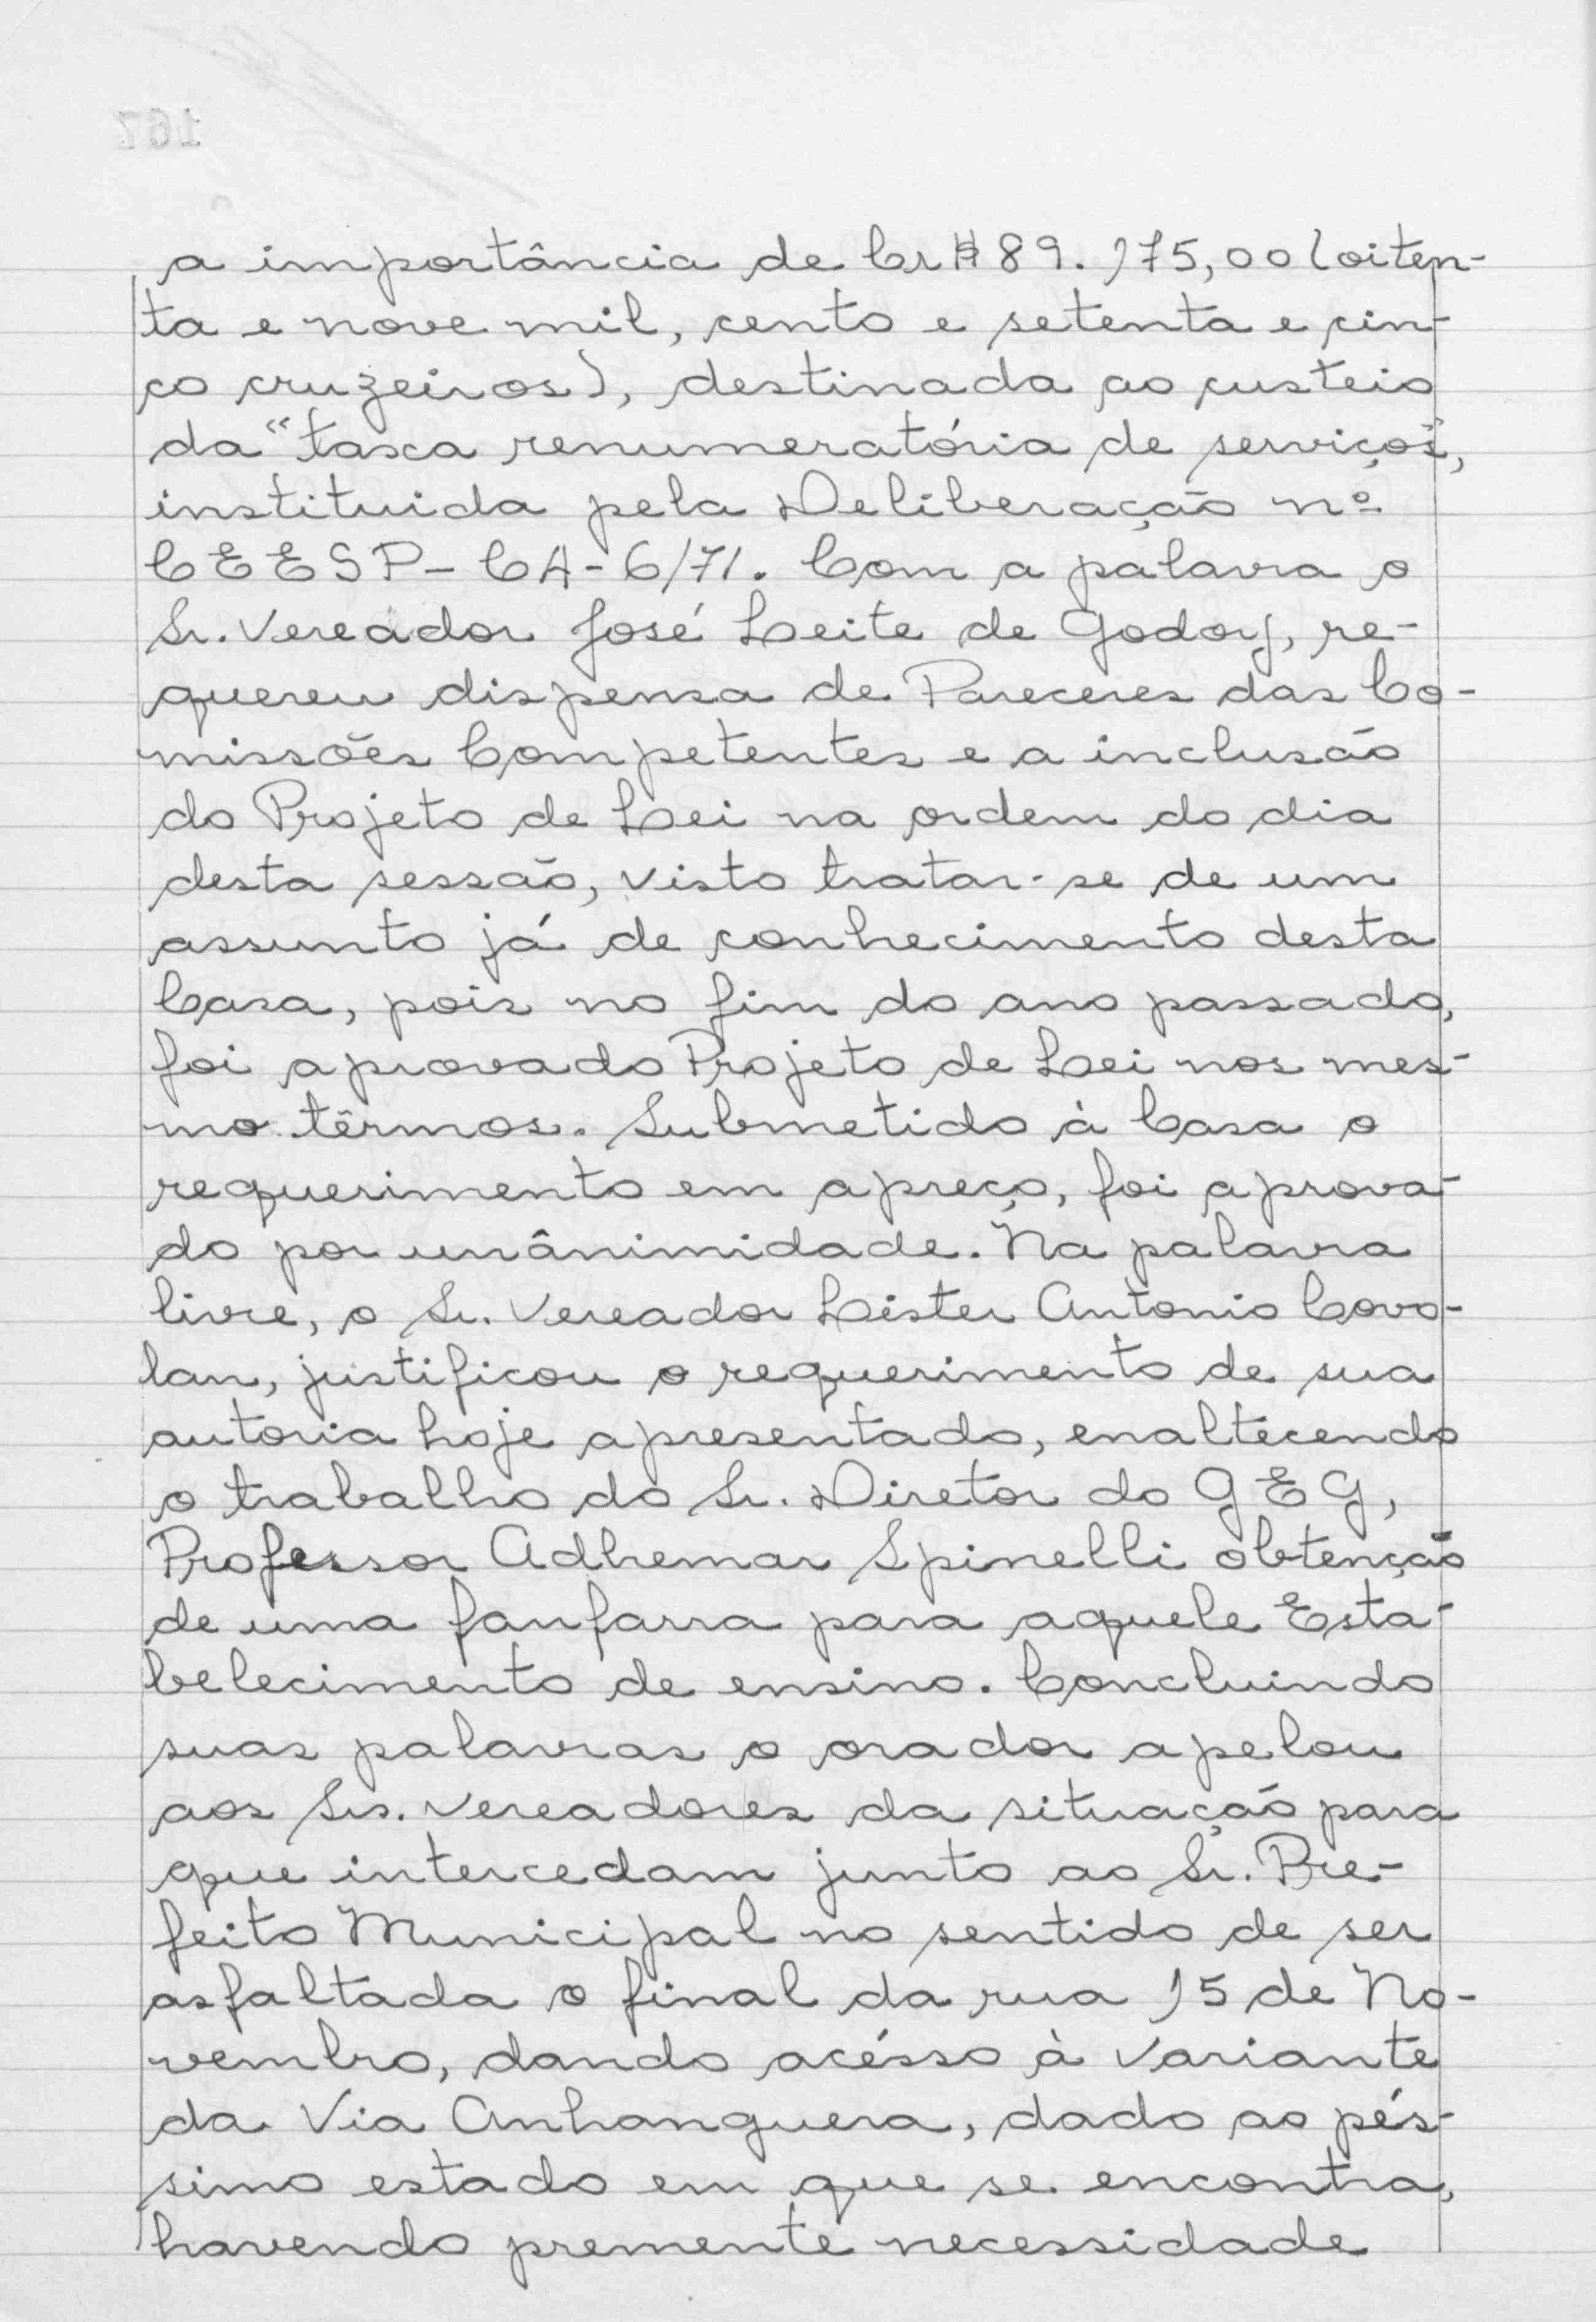 a importância de Cr$ 89.175,00 (oiten-
ta e nove mil, cento e setenta e cin-
co cruzeiros), destinada ao custeio
da "taxa renumeratória de serviços",
instituida pela Deliberação nº
CEESP-CA-6/71. Com a palavra o
Sr. Vereador José Leite de Godoy, re-
quereu dispensa de Pareceres das Co-
missões Competentes e a inclusão
do Projeto de Lei na ordem do dia
desta sessão, visto tratar-se de um
assunto já de conhecimento desta
Casa, pois no fim do ano passado,
foi aprovado Projeto de Lei nos mes-
mo têrmos. Submetido à Casa o
requerimento em apreço, foi aprova-
do por unânimidade. Na palavra
livre, o Sr. Vereador Lister Antonio Covo-
lan, justificou o requerimento de sua
autoria hoje apresentado, enaltecendo
o trabalho do Sr. Diretor do GEG,
Professor Adhemar Spinelli obtenção
de uma fanfarra para aquele Esta-
belecimento de ensino. Concluindo
suas palavras o orador apelou
aos Srs. Vereadores da situação para
que intercedam junto ao Sr. Pre-
feito Municipal no sentido de ser
asfaltada o final da rua 15 de No-
vembro, dando acésso à Variante
da Via Anhanguera, dado ao pés-
simo estado em que se encontra,
havendo premente necessidade